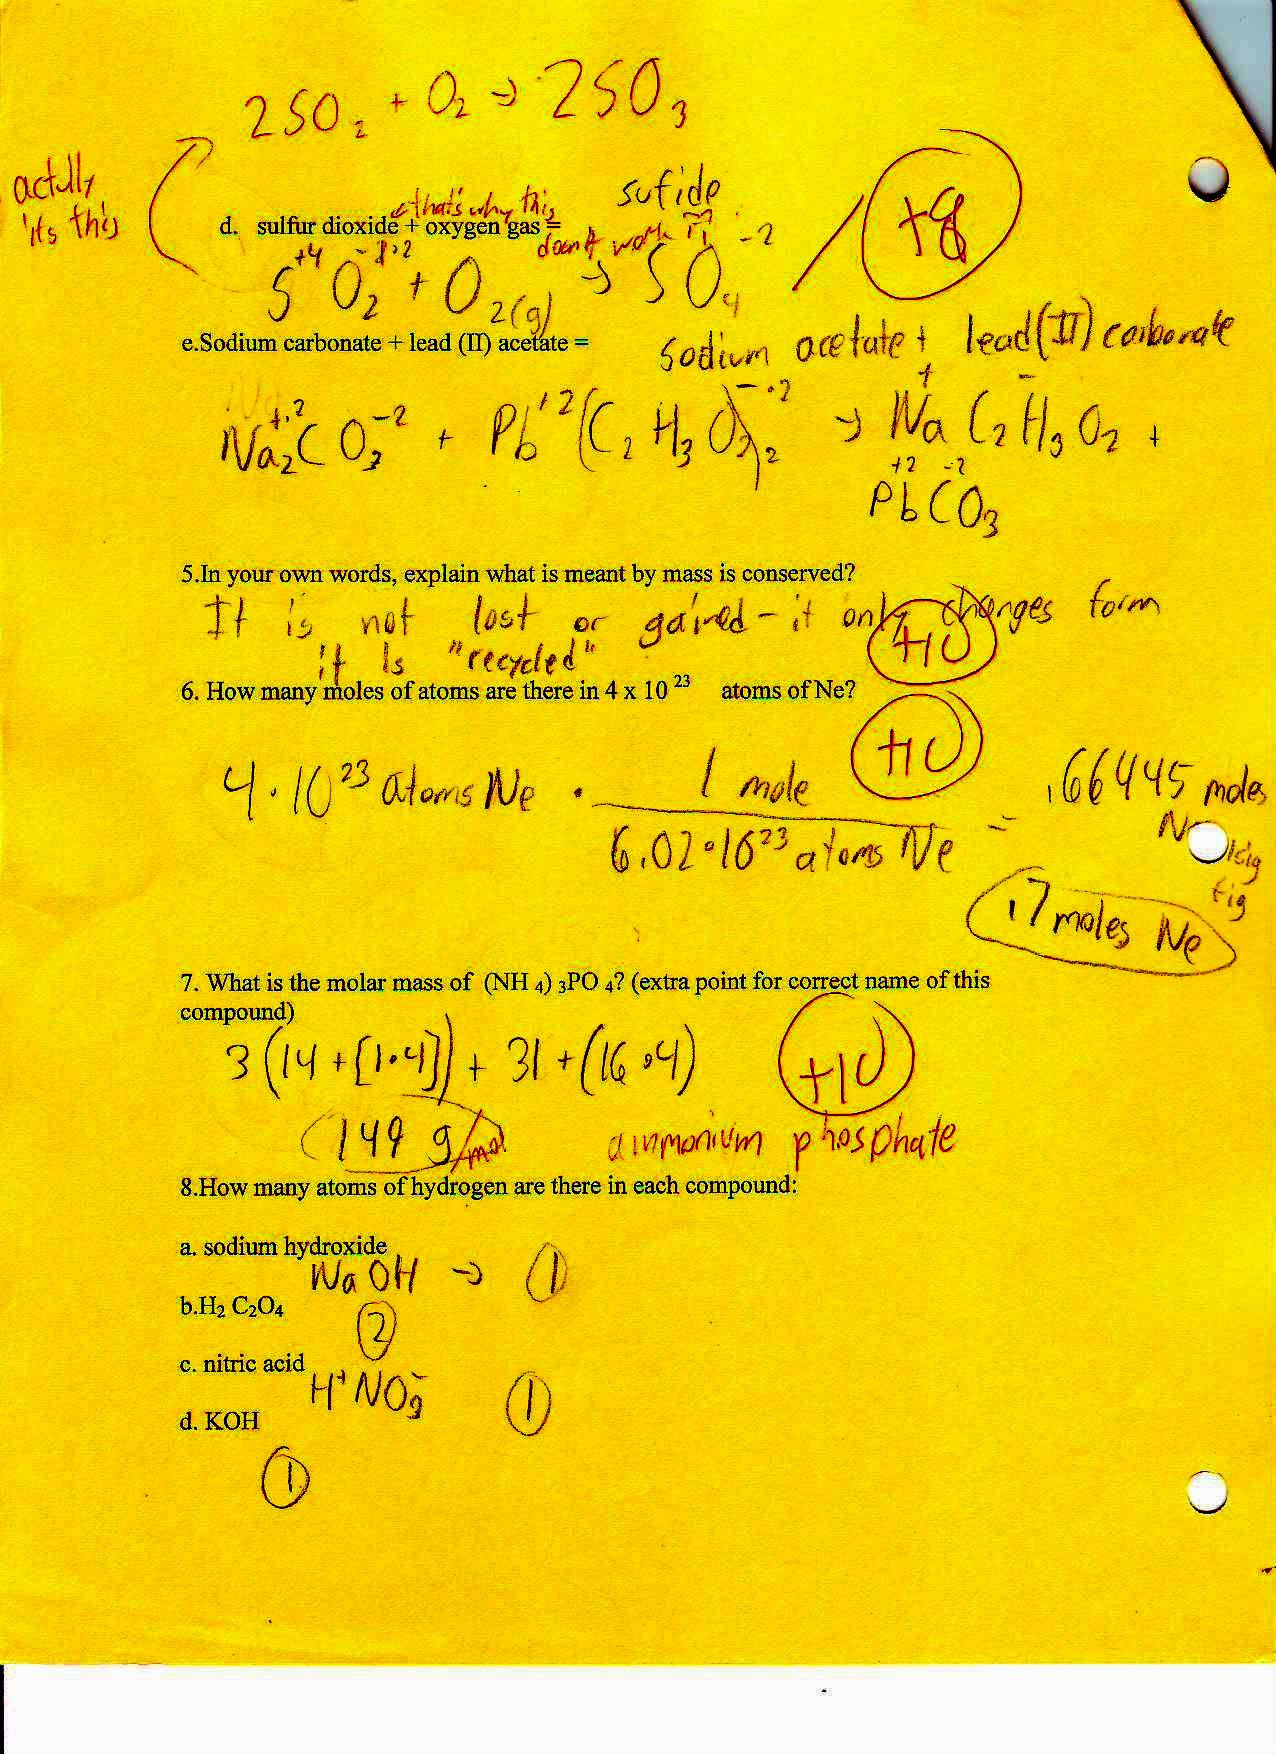 2SO₂ + O₂ → 2SO₃
its this
that's why this
sufide
+8
d. sulfur dioxide + oxygen gas =
doesn't work
-2
+4 -1·2
S O₂ + O₂(g) → SO₄
e.Sodium carbonate + lead (II) acetate =
sodium acetate + lead(II) carbonate
+·2 -2 +2 - ·2 + -
Na₂CO₃ + Pb(C₂H₃O₂)₂ → NaC₂H₃O₂ +
+2 -2
PbCO₃
5.In your own words, explain what is meant by mass is conserved?
It is not lost or gained - it only changes form
it is "recycled"
+10
6. How many moles of atoms are there in 4 x 10 ²³ atoms of Ne?
+10
4·10²³ atoms Ne · 1 mole = .66445 moles
6.02·10²³ atoms Ne
1 sig
fig
.7 moles Ne
7. What is the molar mass of (NH ₄) ₃PO ₄? (extra point for correct name of this
compound)
3(14 + [1·4]) + 31 + (16·4)
+10
149 g/mol ammonium phosphate
8.How many atoms of hydrogen are there in each compound:
a. sodium hydroxide
NaOH → 1
b.H₂ C₂O₄
2
c. nitric acid
H⁺NO₃⁻ 1
d. KOH
1